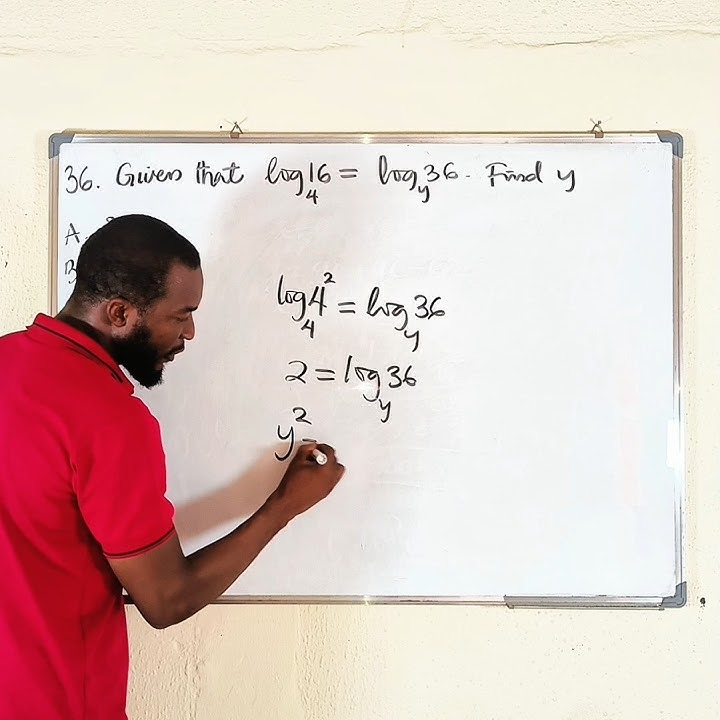 36. Given that log₄16 = log_y 36. Find y
A.
B
log₄4² = log_y 36
2 = log_y 36
y² =